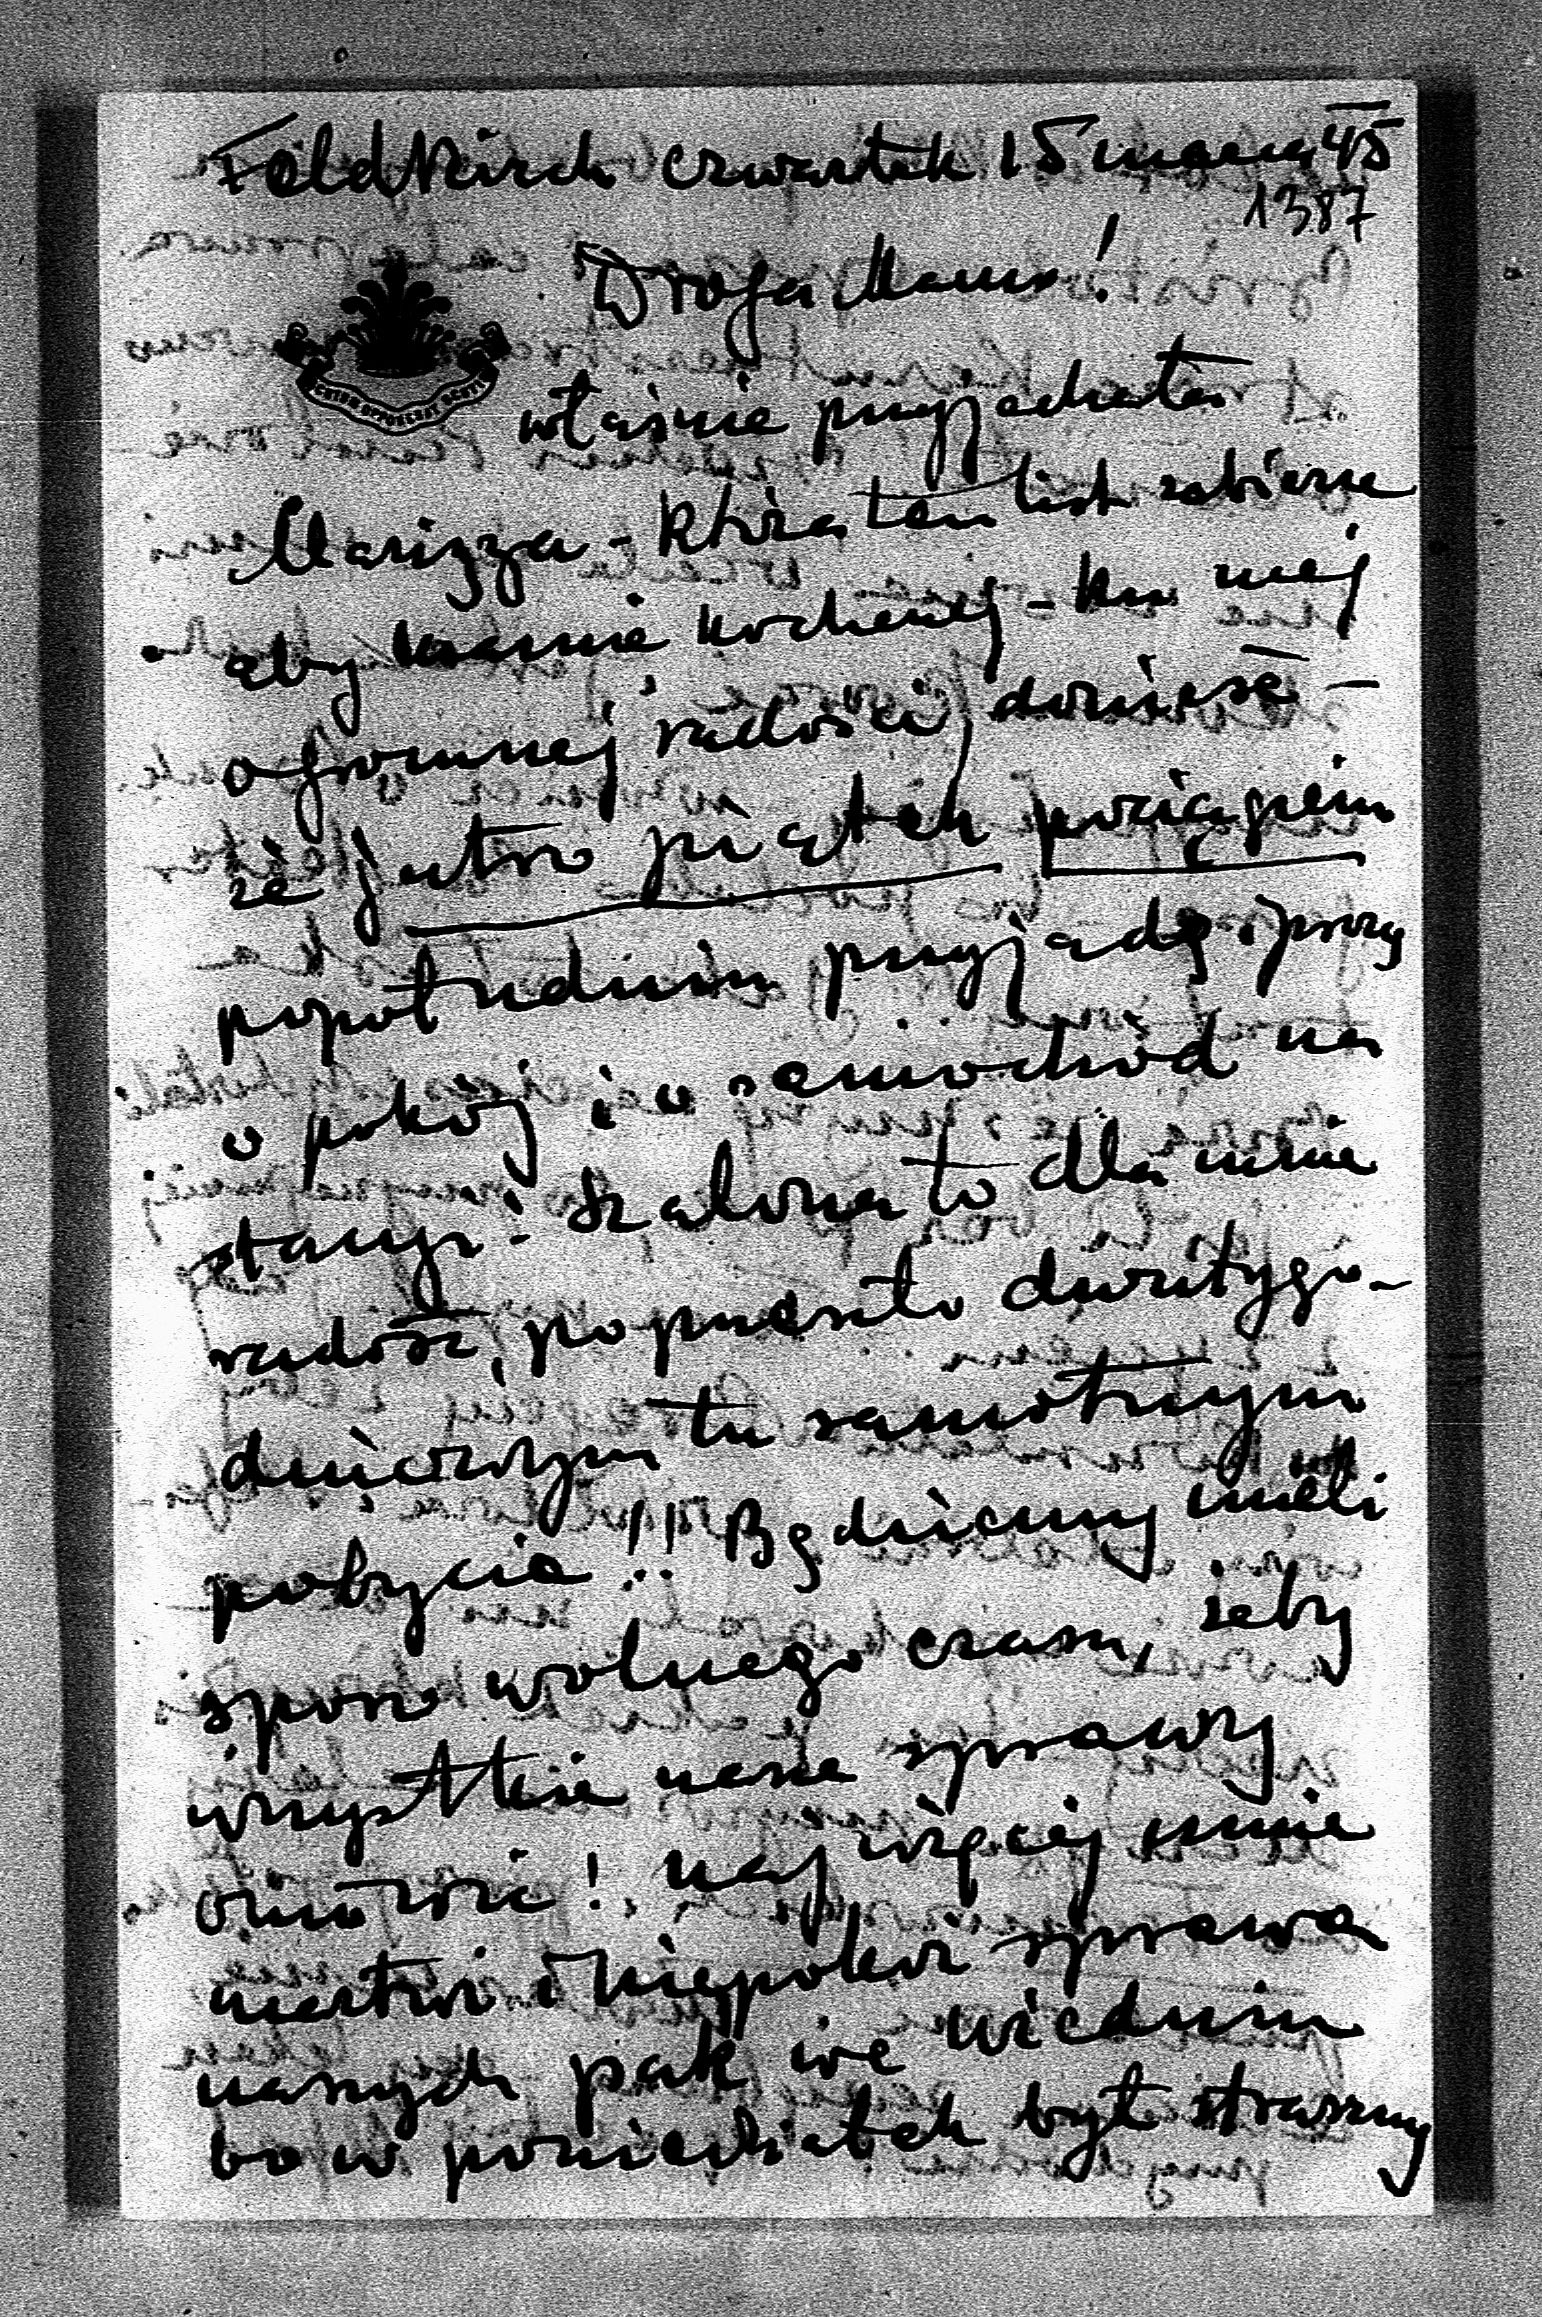 Feldkirch czwartek 15 marca 45
1387
Droga Mamo!
właśnie przyjechała
Marizza - która ten list zabierze
aby Mamie kochanej - ku mej
ogromnej radości, donieść -
że jutro piątek pociągiem
popołudniu przyjadę i proszę
o pokój i o samochód na
stacyi. Szalona to dla mnie
radość, po przeszło dwutygo-
dniowym tu samotnym
pobycie!! Będziemy mieli
sporo wolnego czasu, żeby
wszystkie nasze sprawy
omówić! najwięcej mnie
martwi i niepokoi sprawa
naszych pak we Wiedniu
bo w poniedziałek był straszny